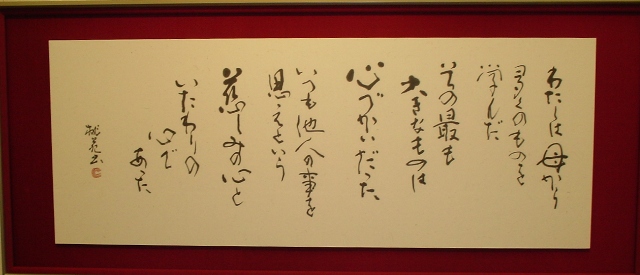 わたしは母から
多くのものを
学んだ
その最も
大きなものは
心づかいだった
いつも他人の事を
思えという
慈しみの心と
いたわりの
心で
あった